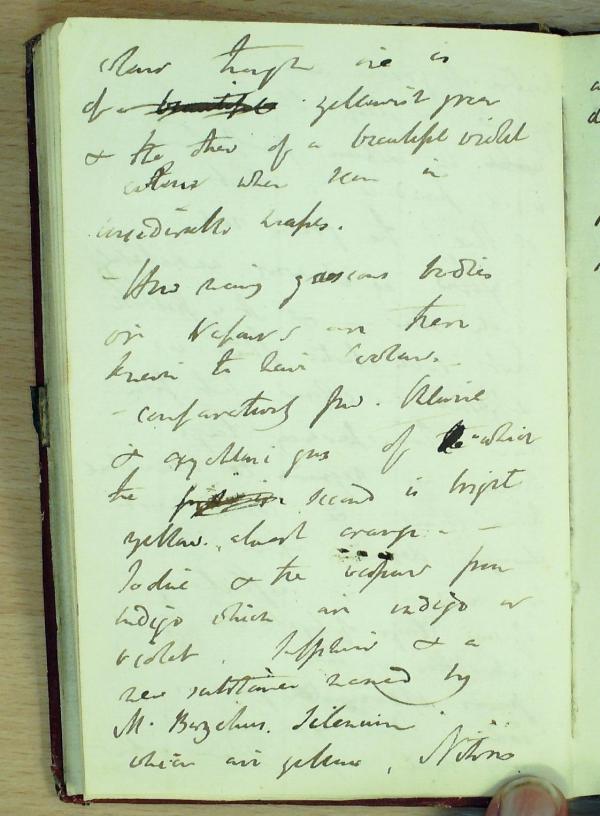 colour though one is
of a beautiful yellowish green
& the other of a beautiful violet
colour when seen in
considerable
- How many gaseous bodies
or Vapours are there
known to have colour -
- comparatively few. Chlorine
& oxychloric gas of which
the second is bright
yellow almost orange -
Iodine & the vapour from
indigo which are indigo or
violet. Sulphur & a
new substance named by
M. Berzelius. Selenium
which are yellow, Nitrous